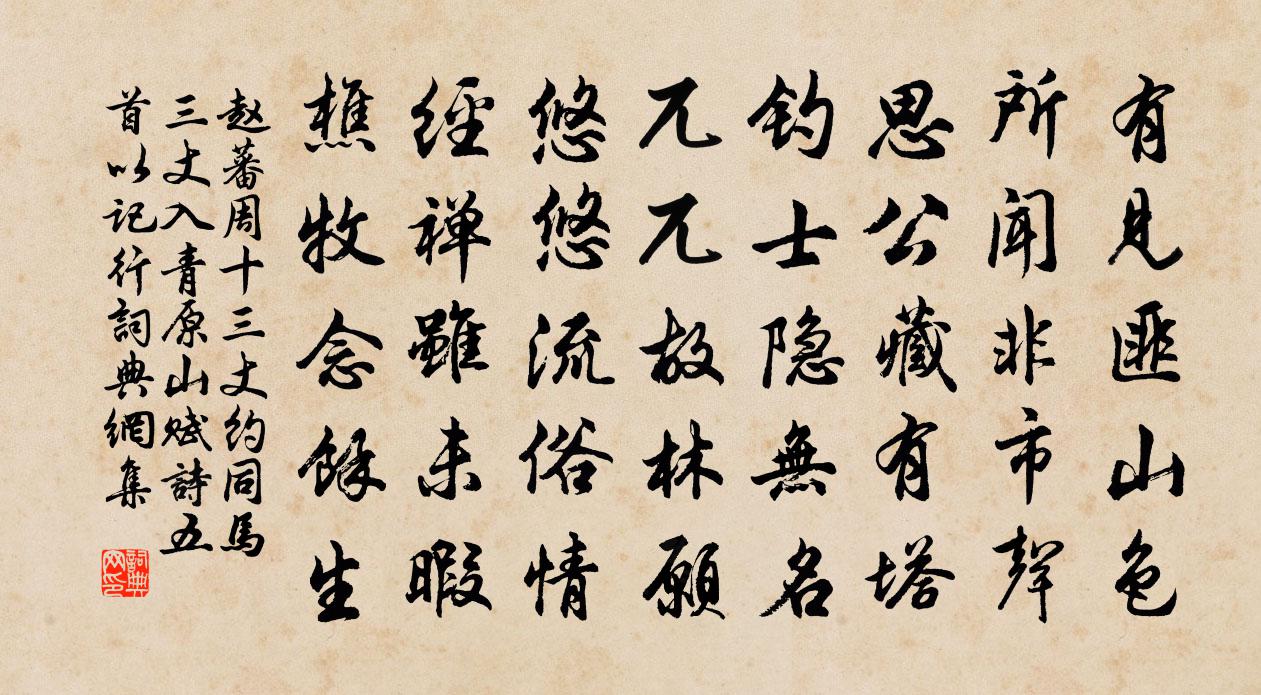 有見匪山色
所聞非市聲
思公藏有塔
钓士隐無名
兀兀故林願
悠悠流俗情
經禅雖未暇
樵牧念餘生
赵蕃周十三丈约同馬
三丈入青原山赋詩五
首以记行詞典網集
詞典网印